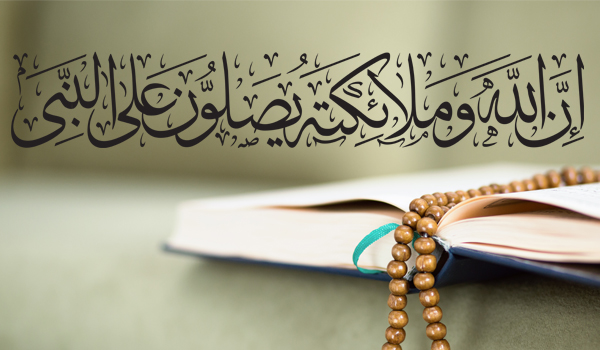 إِنَّ اللَّهَ وَمَلَائِكَتَهُ يُصَلُّونَ عَلَى النَّبِيِّ